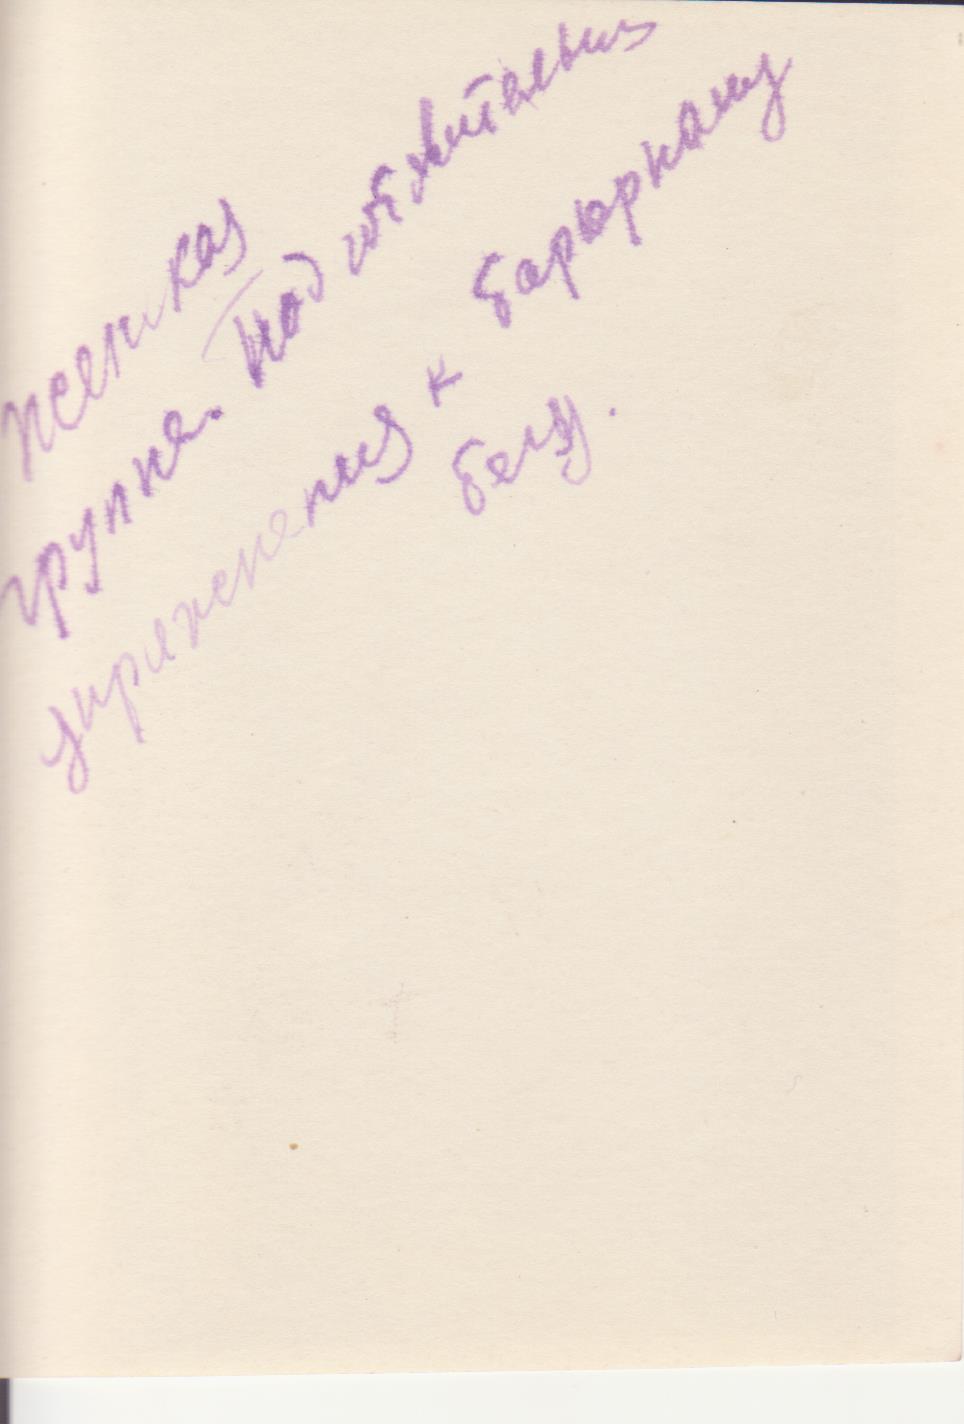 женская
группа. Подготовительные
упражнения к барьерному
бегу.